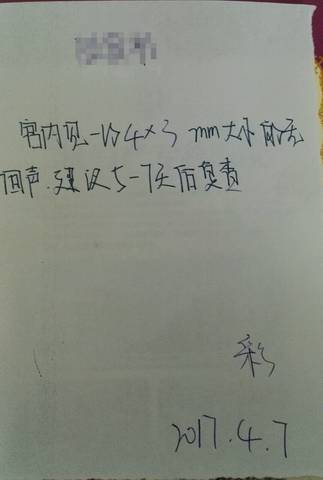 宫内见一约4×3 mm大小的无
回声.建议5-7天后复查
彩
2017.4.7